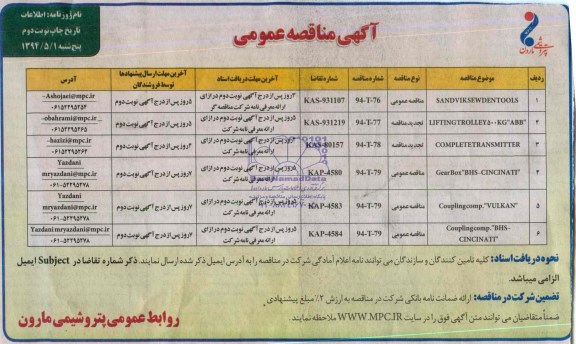 نام روزنامه: اطلاعات
تاریخ چاپ نوبت دوم
پنجشنبه ۱۳۹۴/۵/۱
آگهی مناقصه عمومی
پتروشیمی مارون
ردیف موضوع مناقصه نوع مناقصه شماره مناقصه شماره تقاضا آخرین مهلت دریافت اسناد آخرین مهلت ارسال پیشنهادها توسط فروشندگان آدرس
۱ SANDVIKSEWDENTOOLS مناقصه عمومی 94-T-76 KAS-931107 ۳روز پس از درج آگهی نوبت دوم در ازای ارائه معرفی نامه شرکت مناقصه گر ۵روز پس از درج آگهی نوبت دوم Ashojaei@mpc.ir-
۲ LIFTINGTROLLEY۵۰۰KG"ABB" تجدید مناقصه 94-T-77 KAS-931219 ۵روز پس از درج آگهی نوبت دوم در ازای ارائه معرفی نامه شرکت ۷روز پس از درج آگهی نوبت دوم obahrami@mpc.ir-
۳ COMPLETETRANSMITTER تجدید مناقصه 94-T-78 KAS-80157 ارائه معرفی نامه شرکت ۷روز پس از درج آگهی نوبت دوم hazizi@mpc.ir-
۴ GearBox"BHS-CINCINATI" مناقصه عمومی 94-T-79 KAP-4580 ۷روز پس از درج آگهی نوبت دوم Yazdani mryazdani@mpc.ir
۵ Couplingcomp."VULKAN" مناقصه عمومی 94-T-79 KAP-4583 ۷روز پس از درج آگهی نوبت دوم Yazdani mryazdani@mpc.ir
۶ Couplingcomp."BHS-CINCINATI" مناقصه عمومی 94-T-79 KAP-4584 ۵روز پس از درج آگهی نوبت دوم در ازای ارائه معرفی نامه شرکت ۷روز پس از درج آگهی نوبت دوم Yazdani mryazdani@mpc.ir
نحوه دریافت اسناد: کلیه تامین کنندگان و سازندگان می توانند نامه اعلام آمادگی شرکت در مناقصه را به آدرس ایمیل ذکر شده ارسال نمایند. ذکر شماره تقاضا در Subject ایمیل
الزامی میباشد.
تضمین شرکت در مناقصه: ارائه ضمانت نامه بانکی شرکت در مناقصه به ارزش ۲٪ مبلغ پیشنهادی
ضمناً متقاضیان می توانند متن آگهی فوق را در سایت WWW.MPC.IR ملاحظه نمایند.
روابط عمومی پتروشیمی مارون